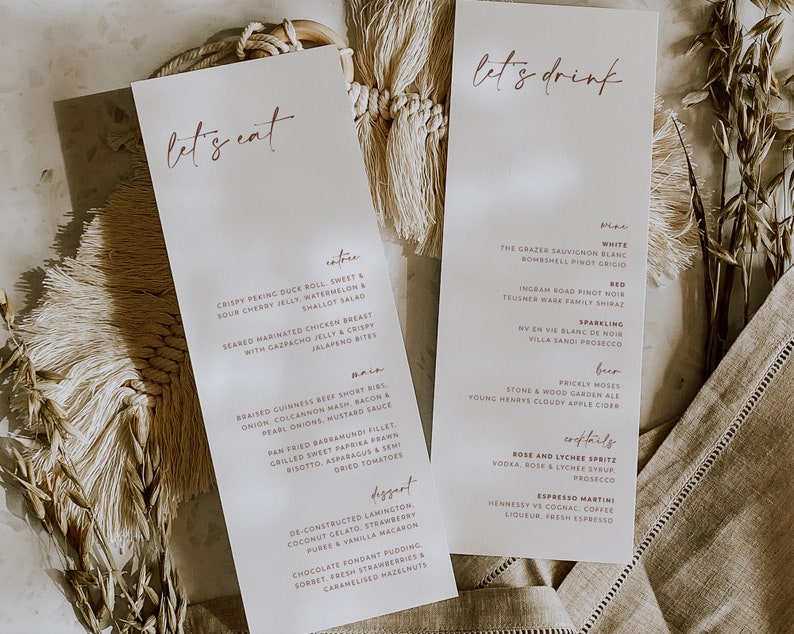 let's eat
entree
CRISPY PEKING DUCK ROLL, SWEET &
SOUR CHERRY JELLY, WATERMELON &
SHALLOT SALAD
SEARED MARINATED CHICKEN BREAST
WITH GAZPACHO JELLY & CRISPY
JALAPENO BITES
main
BRAISED GUINNESS BEEF SHORT RIBS,
ONION, COLCANNON MASH, BACON &
PEARL ONIONS, MUSTARD SAUCE
PAN FRIED BARRAMUNDI FILLET,
GRILLED SWEET PAPRIKA PRAWN
RISOTTO, ASPARAGUS & SEMI
DRIED TOMATOES
dessert
DE-CONSTRUCTED LAMINGTON,
COCONUT GELATO, STRAWBERRY
PUREE & VANILLA MACARON
CHOCOLATE FONDANT PUDDING,
SORBET, FRESH STRAWBERRIES &
CARAMELISED HAZELNUTS
let's drink
wine
WHITE
THE GRAZER SAUVIGNON BLANC
BOMBSHELL PINOT GRIGIO
RED
INGRAM ROAD PINOT NOIR
TEUSNER WARK FAMILY SHIRAZ
SPARKLING
NV EN VIE BLANC DE NOIR
VILLA SANDI PROSECCO
beer
PRICKLY MOSES
STONE & WOOD GARDEN ALE
YOUNG HENRYS CLOUDY APPLE CIDER
cocktails
ROSE AND LYCHEE SPRITZ
VODKA, ROSE & LYCHEE SYRUP,
PROSECCO
ESPRESSO MARTINI
HENNESSY VS COGNAC, COFFEE
LIQUEUR, FRESH ESPRESSO